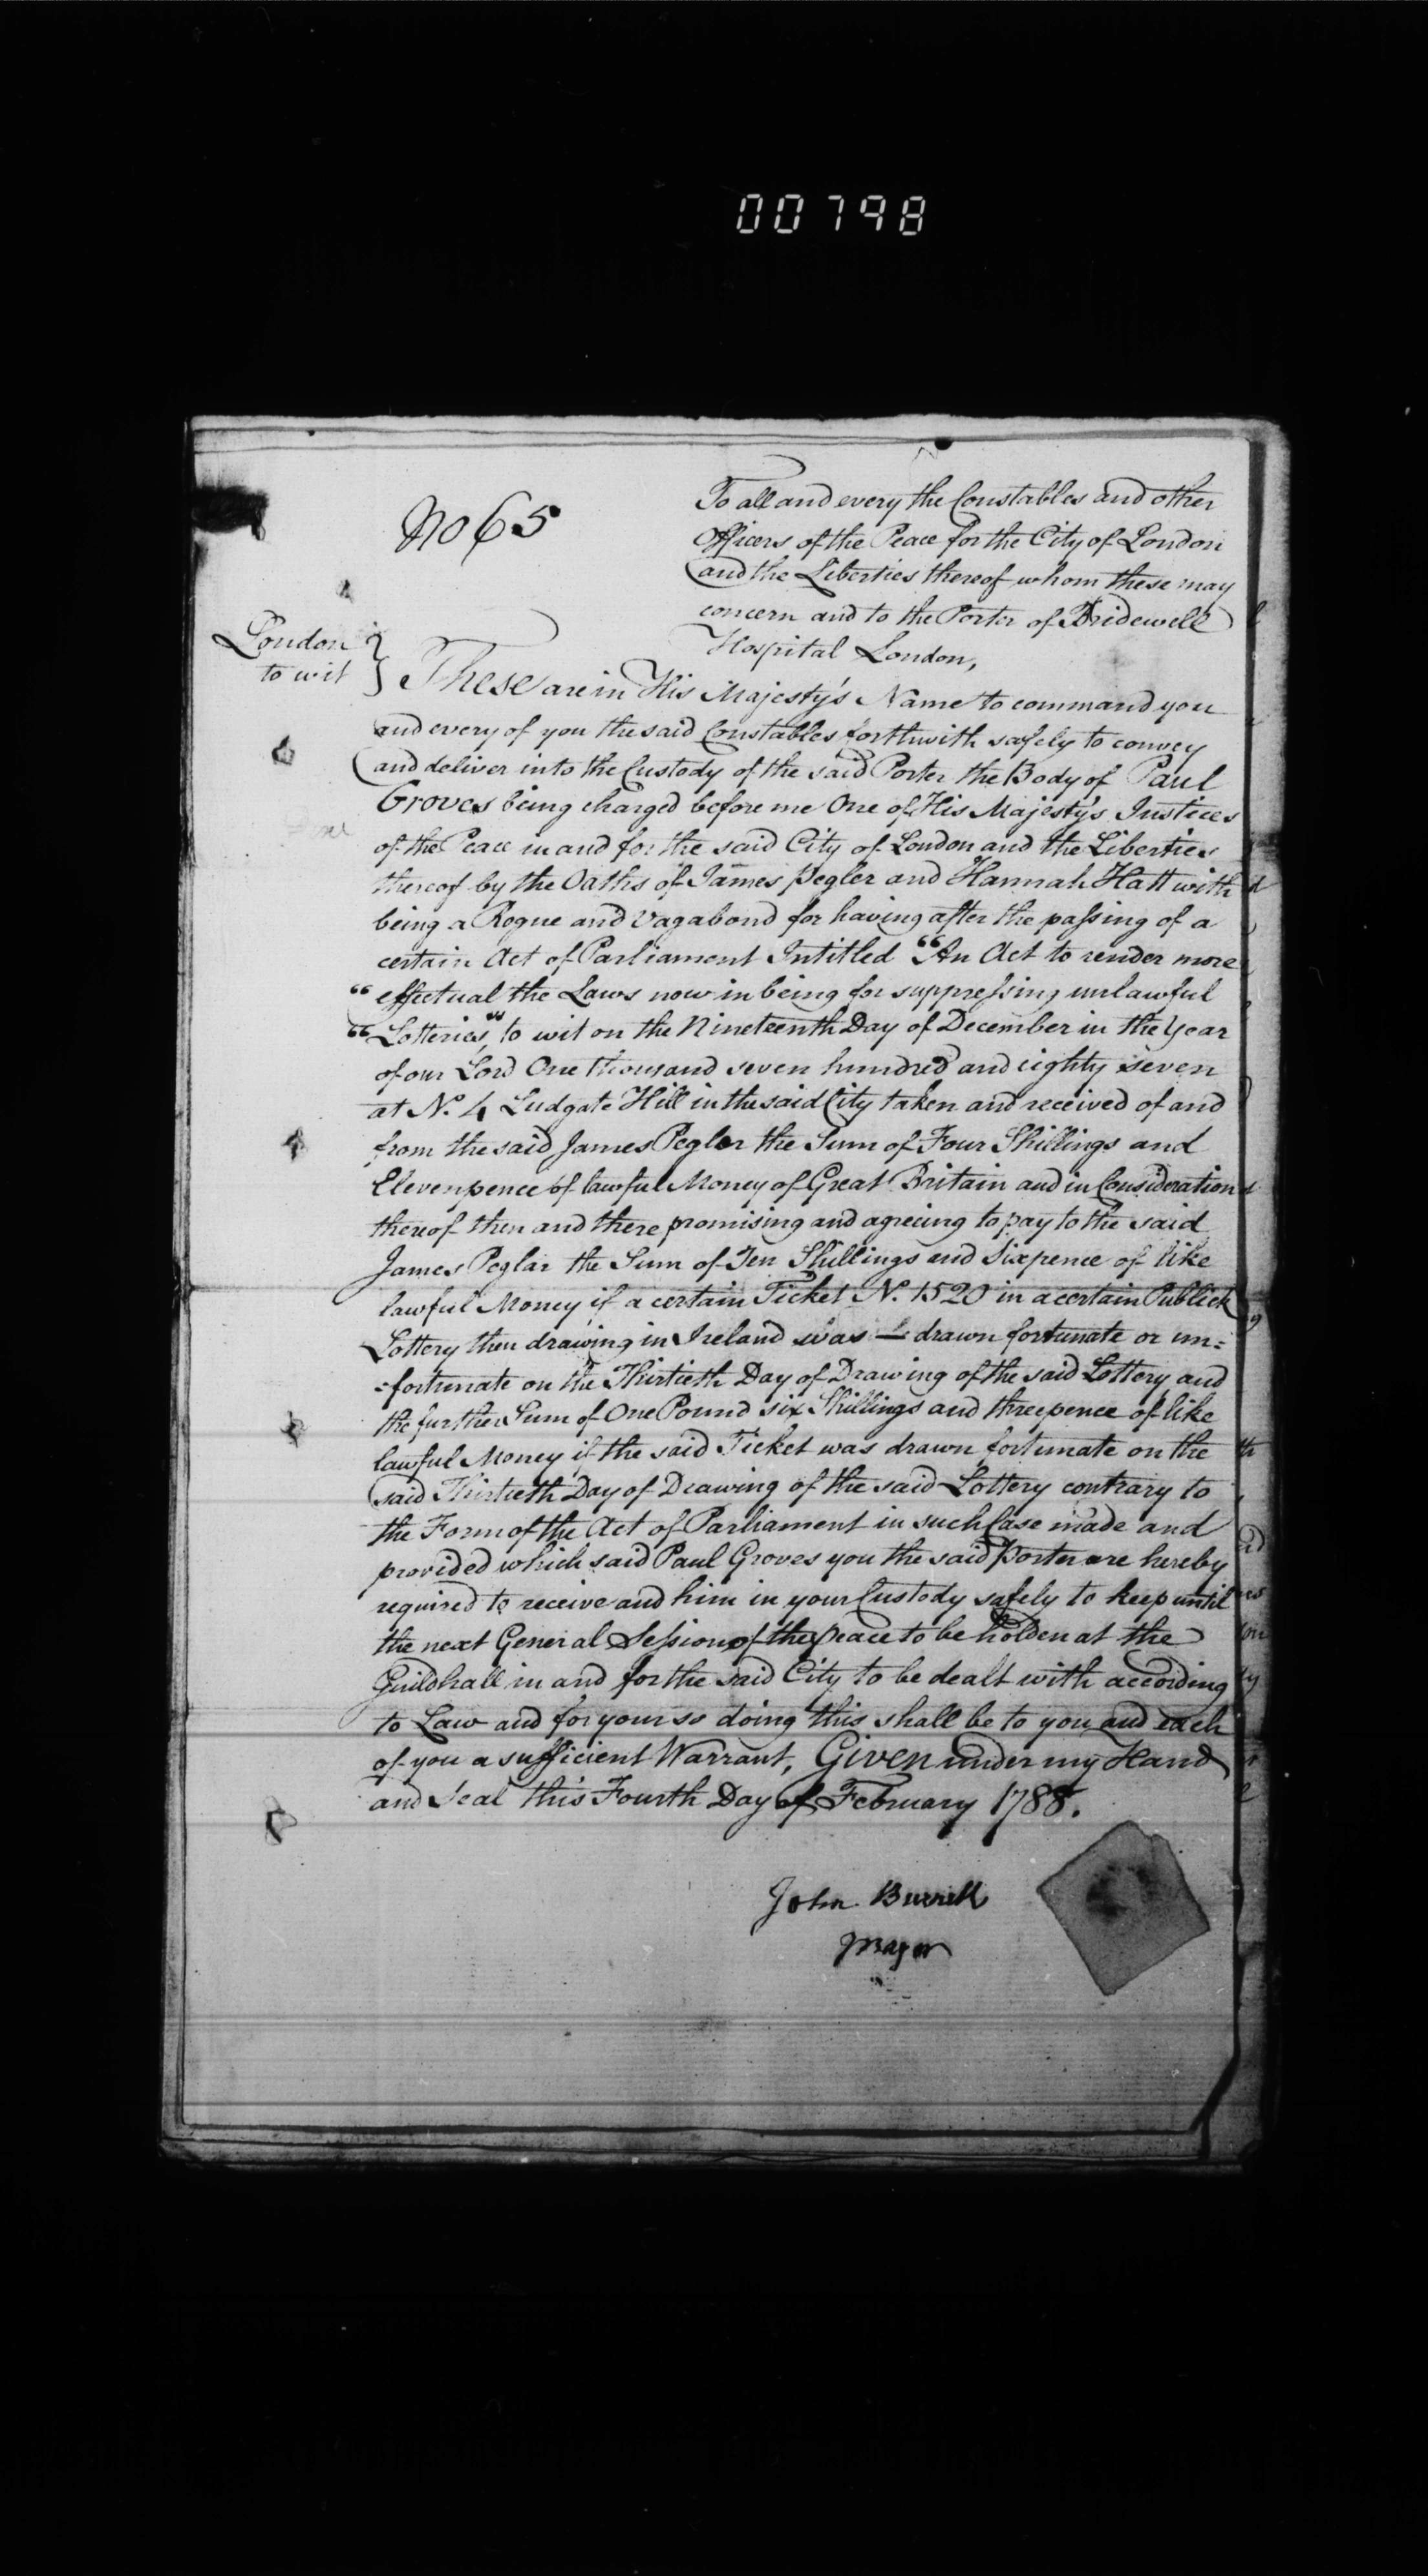 00798
No 65
To all and every the Constables and other
Officers of the Peace for the City of London
and the Liberties thereof whom these may
concern and to the Porter of Bridewell
Hospital London,
London
to wit } These are in His Majesty's Name to command you
and every of you the said Constables forthwith safely to convey
and deliver into the Custody of the said Porter the Body of Paul
Groves being charged before me One of His Majesty's Justices
of the Peace in and for the said City of London and the Liberties
thereof by the Oaths of James Pegler and Hannah Hatt with
being a Rogue and Vagabond for having after the passing of a
certain Act of Parliament Intitled "An Act to render more
" effectual the Laws now in being for suppressing unlawful
" Lotteries" to wit on the Nineteenth Day of December in the Year
of our Lord One thousand seven hundred and eighty seven
at No. 4 Ludgate Hill in the said City taken and received of and
from the said James Pegler the Sum of Four Shillings and
Elevenpence of lawful Money of Great Britain and in Consideration
thereof then and there promising and agreeing to pay to the said
James Peglar the Sum of Ten Shillings and Sixpence of like
lawful Money if a certain Ticket No. 1520 in a certain Publick
Lottery then drawing in Ireland was drawn fortunate or un=
=fortunate on the Thirtieth Day of Drawing of the said Lottery and
the further Sum of One Pound six Shillings and threepence of like
lawful Money if the said Ticket was drawn fortunate on the
said Thirtieth Day of Drawing of the said Lottery contrary to
the Form of the Act of Parliament in such Case made and
provided which said Paul Groves you the said Porter are hereby
required to receive and him in your Custody safely to keep until
the next General Session of the Peace to be holden at the
Guildhall in and for the said City to be dealt with according
to Law and for your so doing this shall be to you and each
of you a sufficient Warrant, Given under my Hand
and Seal this Fourth Day of February 1788.
John Burnell
Mayor